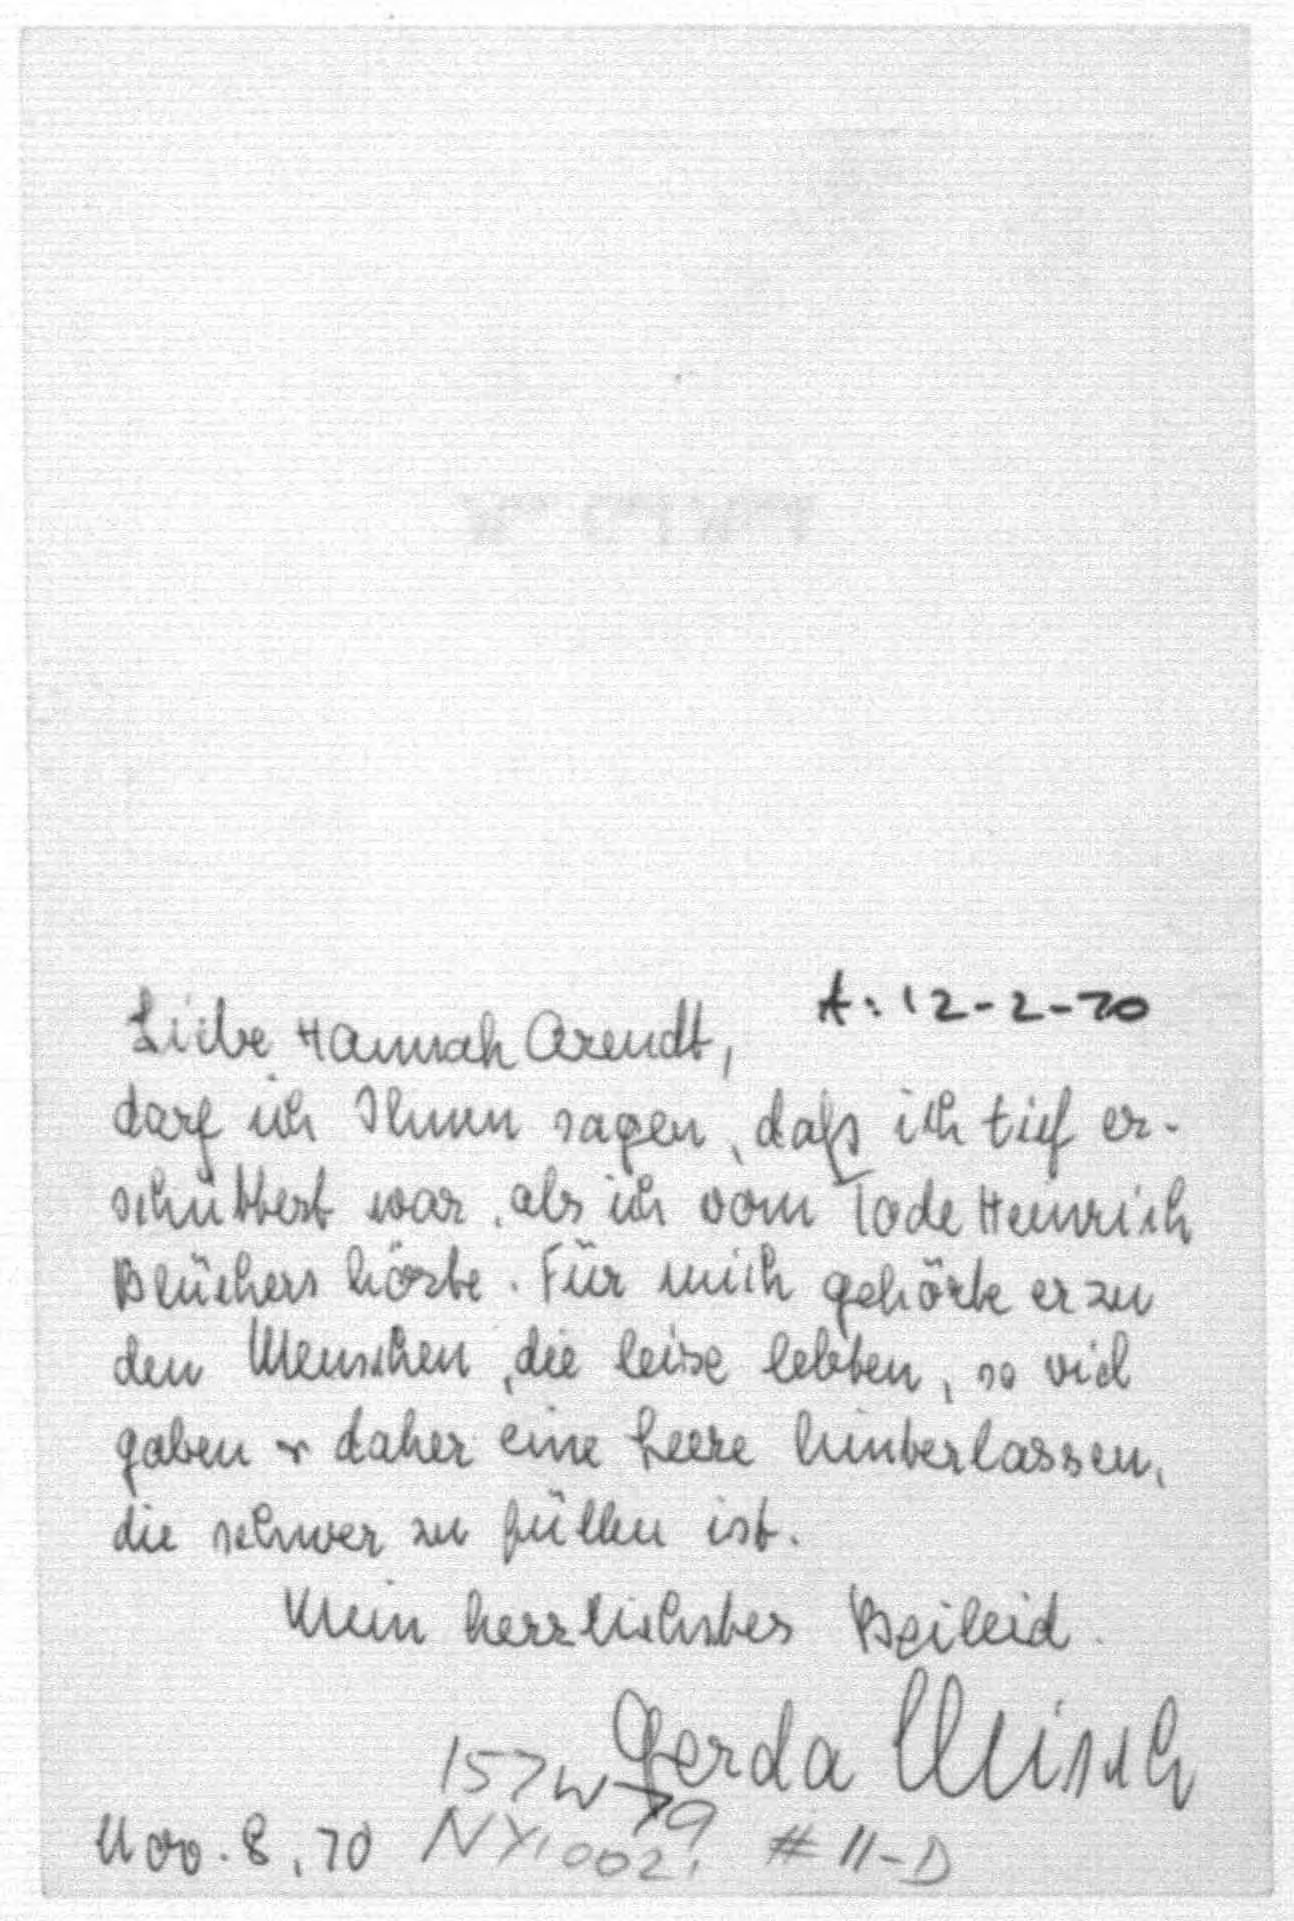 A: 12-2-70
Liebe Hannah Arendt,
darf ich Ihnen sagen, daß ich tief er-
schüttert war, als ich vom Tode Heinrich
Blüchers hörte. Für mich gehörte er zu
den Menschen, die leise lebten, so viel
gaben + daher eine Leere hinterlassen,
die schwer zu füllen ist.
Mein herzlichstes Beileid.
Gerda Meisch
157 W 79
Nov. 8, 70 NY 10021 # 11-D